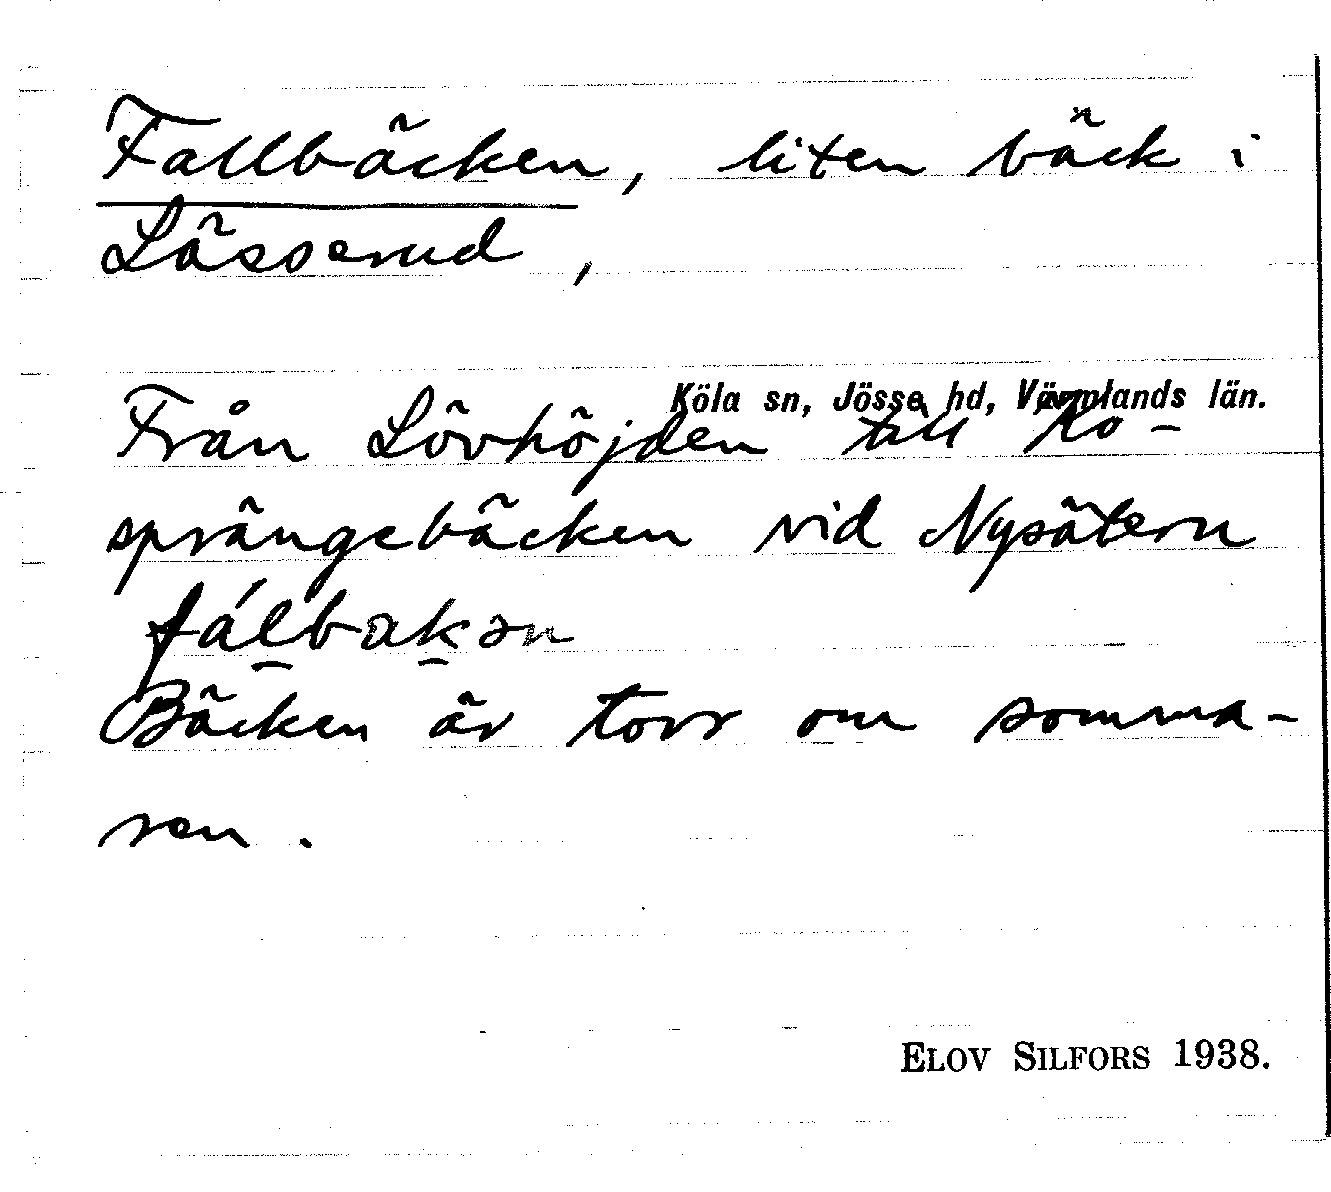 Fallbäcken, liten bäck i
Lässerud,
Köla sn, Jösse hd, Värmlands län.
Från Lövhöjden till Ko-
sprängebäcken vid Nysätern
fálbakən
Bäcken är torr om somma-
ren.
ELOV SILFORS 1938.